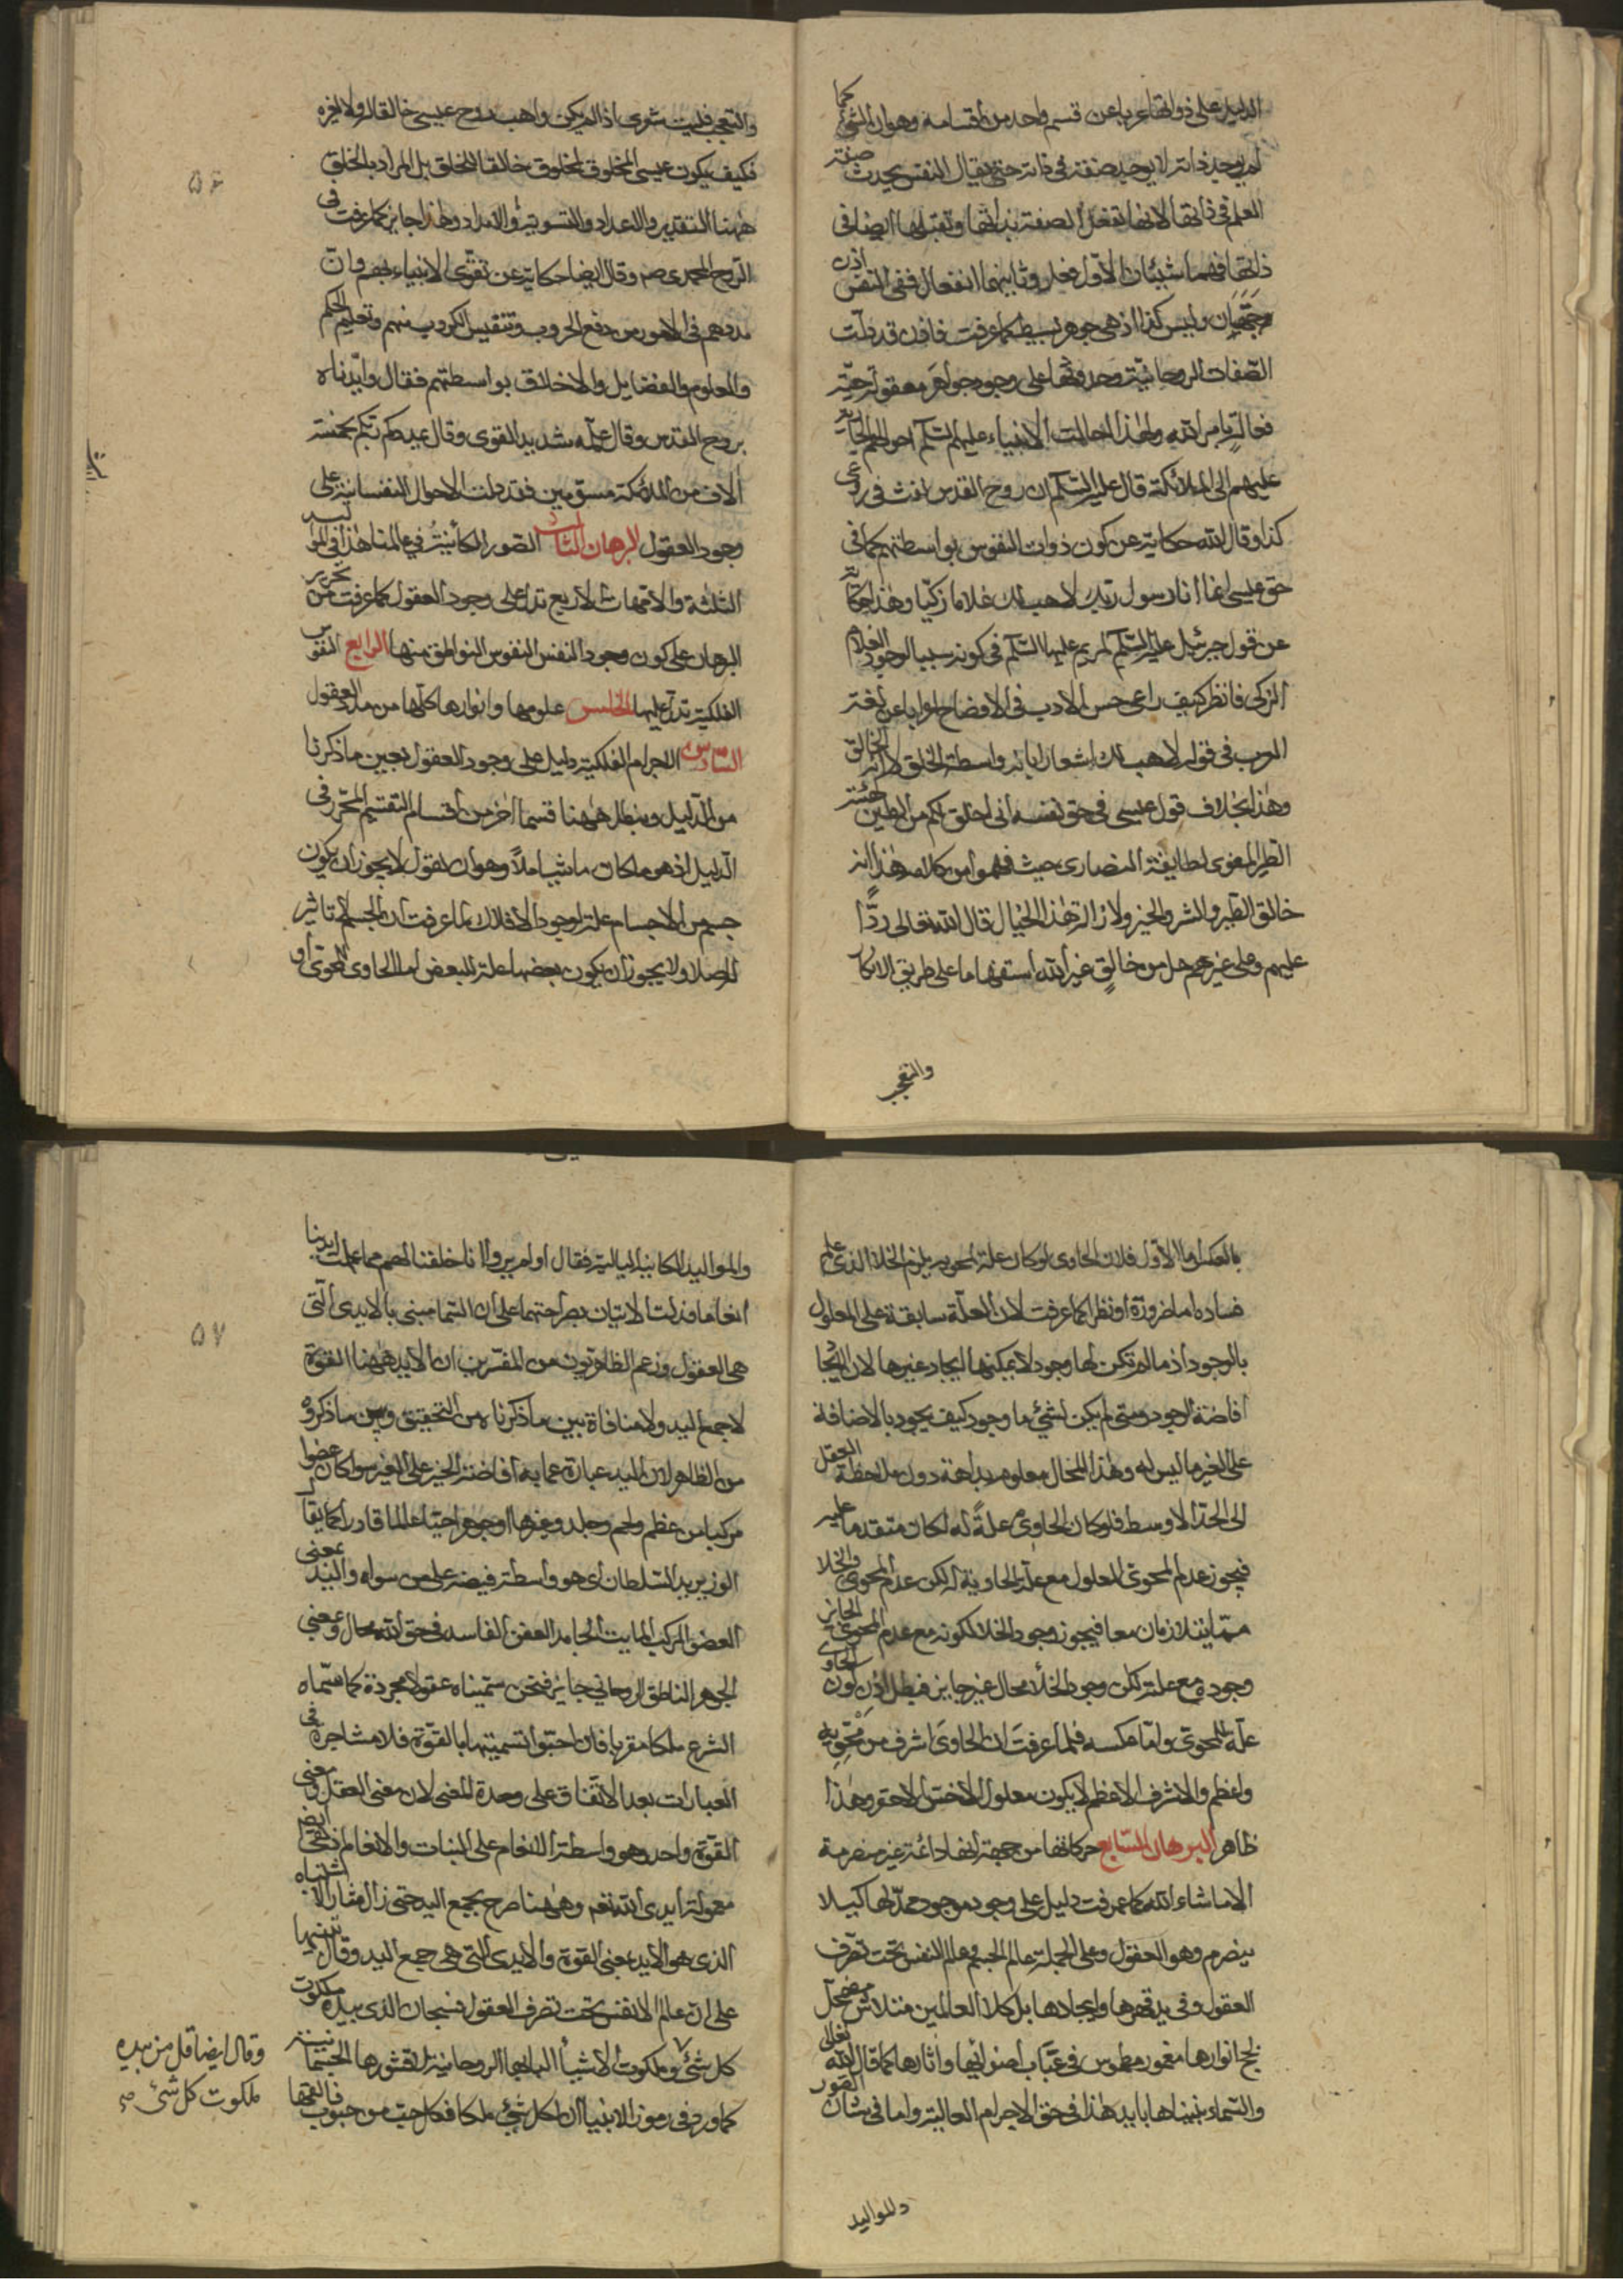 الدليل على ذواتها عريا عن قسم واحد من أقسامه وهو ان الشئ كما
لم يوجد ذاته لا يوجد صفته في ذاته حتى يقال النفس يحدث صفة
العلم في ذاتها لانها تفعل الصفة بذاتها وتقبلها ايضا في
ذاتها فهما شيئان الاول فعل وثانيهما انفعال ففي النفس اذن
جهتان وليس كذا اذ هي جوهر بسيط كما عرفت فاذن قد دلت
الصفات الروحانية وحدوثها على وجود جواهر معقولة حية
فعالة بامر الله ولهذا احالت الانبياء عليهم السلم احوالهم الجارية
عليهم الى الملائكة قال عليه السلم ان روح القدس نفث في روعى
كذا وقال الله حكاية عن كون ذوات النفوس بواسطتهم كما في
حق عيسى انما انا رسول ربك لاهب لك غلاما زكيا وهذا حكاية
عن قول جبرئيل عليه السلم لمريم عليها السلم في كونه سببا لوجود الغلام
الزكى فانظر كيف راعى حسن الادب في الافصاح
الرب في قوله لاهب لك اشعارا بانه واسطة الخلق لا انه الخالق
وهذا بخلاف قول عيسى في حق نفسه انى اخلق لكم من الطين كهيئة
الطير المغوى لطايفة النصارى حيث فهموا من كلامه هذا انه
خالق الطير والشر والخير ولازالة هذا الخيال قال الله تعالى ردًّا
عليهم وعلى غيرهم هل من خالقٍ غير الله استفهاما على طريق الانكار
والتعجب
والتعجب فليت شعرى اذا لم يكن واهب روح عيسى خالقا له ولا لغيره
فكيف يكون عيسى المخلوق لمخلوق خالقا للخلق بل المراد بالخلق
ههنا التقدير والاعداد والتسوية والامداد وهذا جايز كما عرفت في
الروح المحمدى صم وقال ايضا حكاية عن تقوى الانبياء بهم وان
مددهم في الامور من دفع الحروب وتنفيس الكروب منهم وتعليم الحكم
والعلوم والفضايل والاخلاق بواسطتهم فقال وايدناه
بروح القدس وقال علمه شديد القوى وقال يمددكم ربكم بخمسة
الاف من الملائكة مسومين فقد دلت الاحوال النفسانية على
وجود العقول البرهان الثالث الصور الكائنة في عالمنا هذا في المواليد
الثلثة والامهات الاربع تدل على وجود العقول كما عرفت من تحرير
البرهان على كون وجود النفس النفوس النواطق منها الرابع النفوس
الفلكية تدل عليها الخامس علومها وانوارها كلها من مدد العقول
السادس الاجرام الفلكية دليل على وجود العقول بعين ما ذكرنا
من الدليل ونبطل ههنا قسما اخر من اقسام التقسيم المحرر في
الدليل اذ هو ما كان ما شاملاً وهو ان نقول لا يجوز ان يكون
جسم من الاجسام علة لوجود الافلاك لما عرفت ان الجسم لا تاثير
له اصلا ولا يجوز ان يكون بعضها علة للبعض اما الحاوى للمحوى او
٥٦
بالعكس اما الاول فلان الحاوى لو كان علة لمحويه يلزم الخلا الذى علم
فساده اما ضرورة او نظرا كما عرفت لان العلة سابقة على المعلول
بالوجود اذ ما لم تكن لها وجود لا يمكنها ايجاد غيرها لان الايجاد
افاضة الوجود ومتى لم يكن لشئ ما وجود كيف يجود بالاضافة
على الغير ما ليس له وهذا المحال معلوم بداهة دون ملاحظة العقل
الى الحد الاوسط فلو كان الحاوى علةً له لكان متقدما عليه
فيجوز عدم المحوى المعلول مع علة الحاوية له لكن عدم المحوى والخلا
متلازمان معا فيجوز وجود الخلا لكونه مع عدم المحوى الجايز
وجوده مع علته لكن وجود الخلا محال غير جايز فبطل اذن كون الحاوى
علة للمحوى واما عكسه فلما عرفت ان الحاوى اشرف من محويه
واعظم والاشرف الاعظم لا يكون معلول الاخس الاحقر وهذا
ظاهر البرهان السابع حركاتها من جهة انها دائمة غير منصرمة
الا ما شاء الله كما عرفت دليل على وجود موجود ممدّ لها كيلا
ينصرم وهو العقول وعلى الجملة عالم الجسم وعالم النفس تحت تصرف
العقول وفي يد قهرها وايجادها بل كلا العالمين متلاش مضمحل
في انوارها مغمور مطموس في عباب اضوائها واثارها كما قال الله تعالى
والسماء بنيناها بايد هذا في حق الاجرام العاليه واما في شان الصور
والمواليد
والمواليد الكاينة البالية فقال اولم يروا انا خلقنا لهم مما عملت ايدينا
انعاما فدلت الايتان بصراحتهما على ان السما مبنى بالايدى التى
هى العقول وزعم الظاهريون من المفسرين ان الايد ههنا القوة
لا جمع اليد ولا منافاة بين ما ذكرناه من التحقيق وبين ما ذكروه
من الظاهر لان اليد عبارة عما به افاضة الخير على الغير سوا كان عضوا
مركبا من عظم ولحم وجلد وغيرها او جوهرا حيا عالما قادرا كما يقال
الوزير يد السلطان اى هو واسطة فيضه على من سواه واليد بمعنى
العضو المركب المايت الجامد العفن الفاسد في حق الله محال وبمعنى
الجوهر الناطق الروحاني جايز فنحن سميناه عقولا مجردة كما سماه
الشرع ملكا مقربا فان احبوا تسميتها بالقوة فلا مشاجرة في
العبارات بعد الاتفاق على وحدة المعنى لان معنى العقل ومعنى
القوة واحد وهو واسطة الانعام على النبات والانعام
معمولة ايدى الله نعم وههنا صرح بجمع اليد حتى زال مثار الاشتباه
الذى هو الايد بمعنى القوة والايدى التى هى جمع اليد وقال تنبيها
على ان عالم الانفس تحت تصرف العقول فسبحان الذى بيده ملكوت
كل شئ وملكوت الاشيا الروحانية لقشورها الجسمانية
كما ورد في رموز الانبيا ان لكل شئ ملكا فكل حبة من حبوب
وقال ايضا قل من بيده
ملكوت كل شئ صح
٥٧